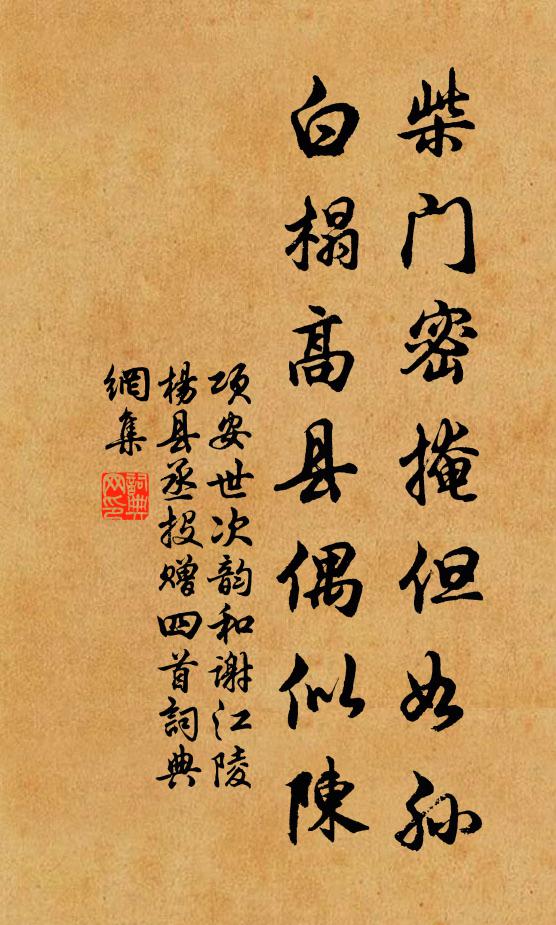 柴门密掩但如孙
白榻高县偶似陳
项安世次韵和谢江陵
杨县丞投赠四首詞典
網集
詞典网印